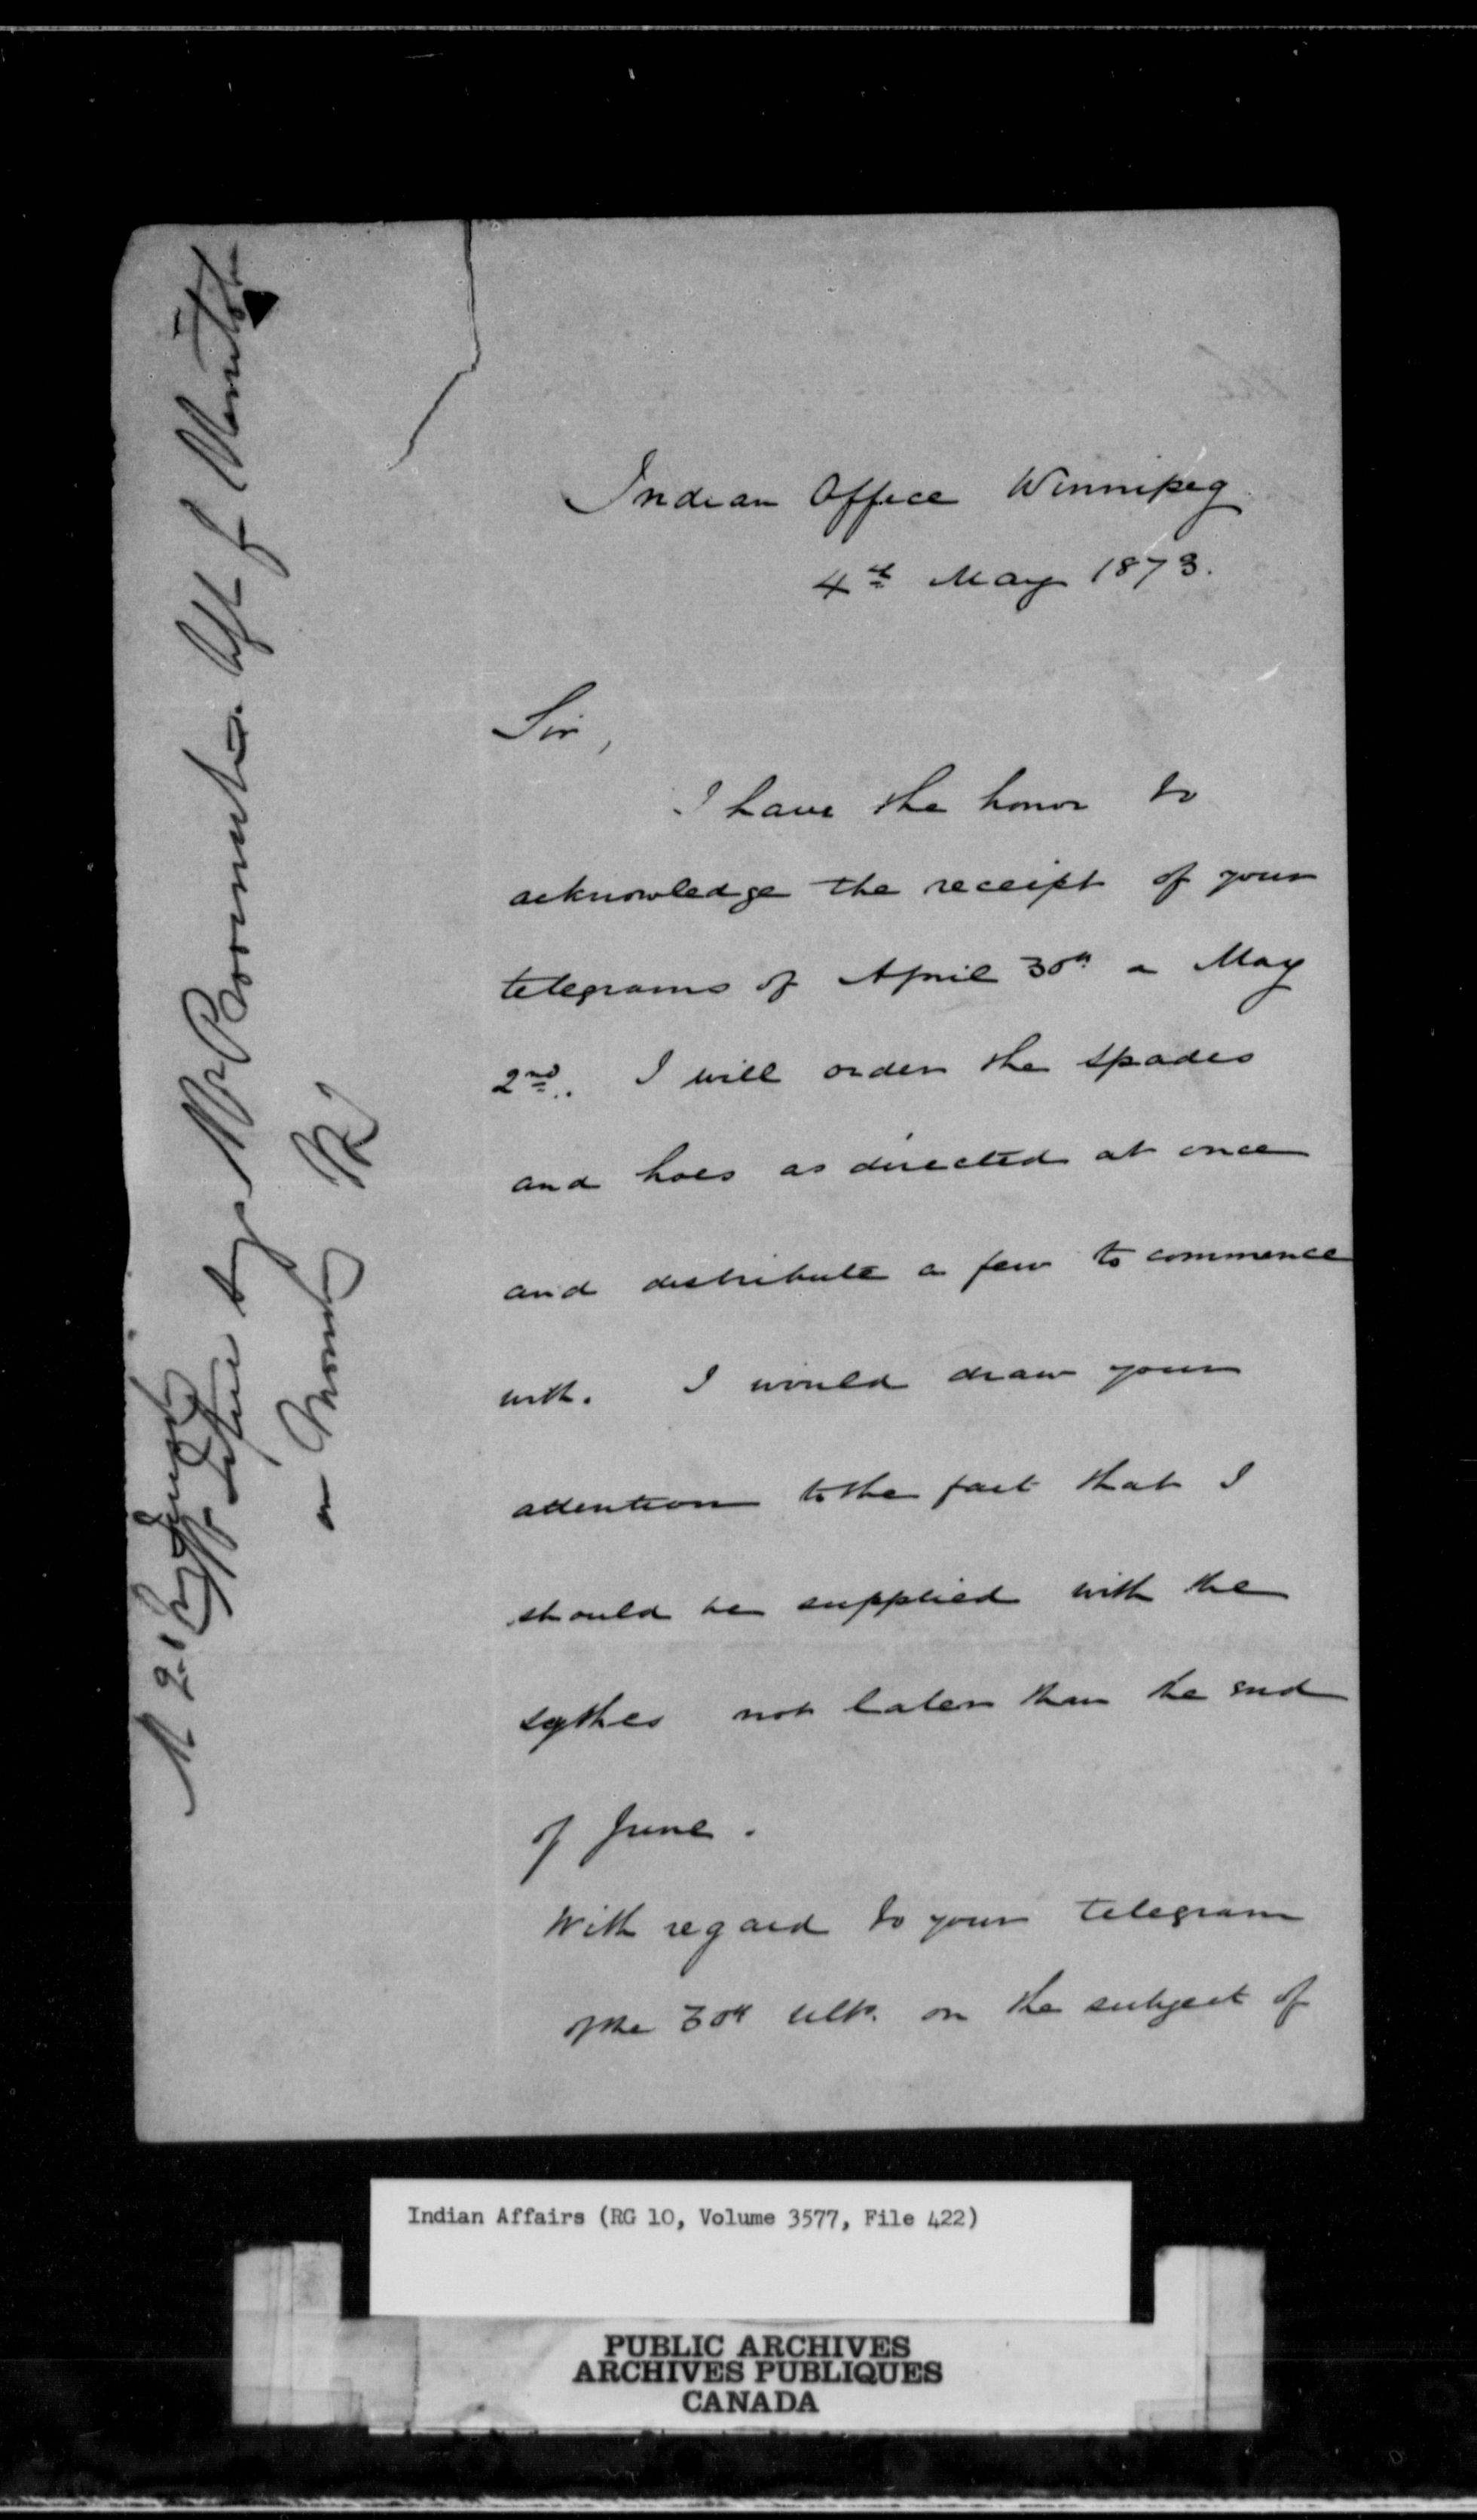 Indian Office Winnipeg
4th May 1873.
Sir,
I have the honor to
acknowledge the receipt of your
telegrams of April 30th & May
2nd. I will order the spades
and hoes as directed at once
and distribute a few to commence
with. I would draw your
attention to the fact that I
should be supplied with the
sythes not later than the end
of June.
With regard to your telegram
of the 30th ulto. on the subject of
of Manitoba
on Monday
Indian Affairs (RG 10, Volume 3577, File 422)
PUBLIC ARCHIVES
ARCHIVES PUBLIQUES
CANADA